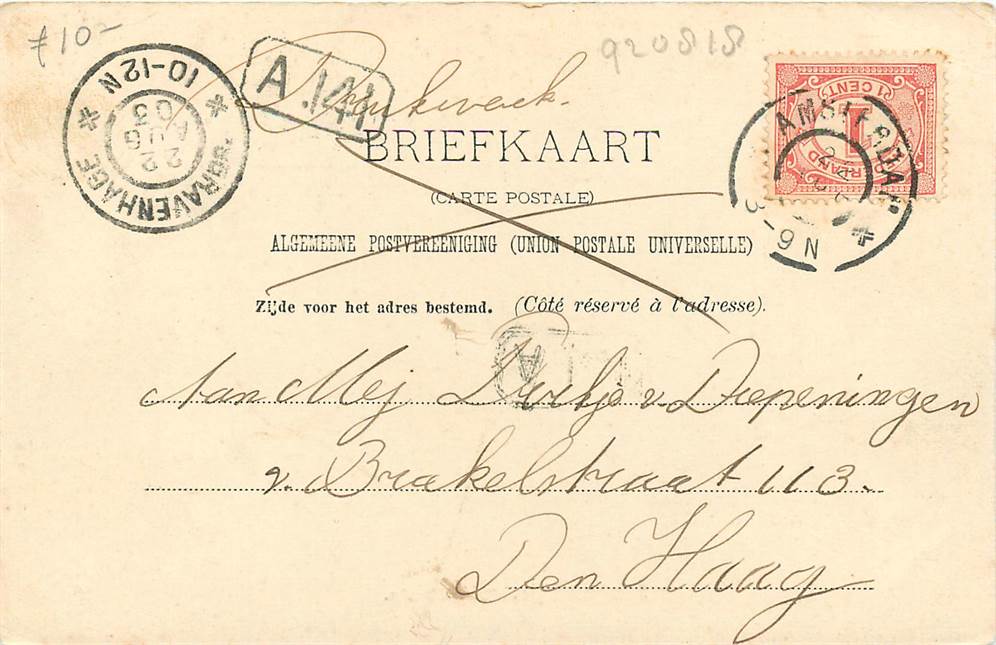 f 10-
920818
Drukwerk.
A.141
'SGRAVENHAGE
22 AUG 03
10-12 N
1 CENT
AMSTERDAM
N
BRIEFKAART
(CARTE POSTALE)
ALGEMEENE POSTVEREENIGING (UNION POSTALE UNIVERSELLE)
Zijde voor het adres bestemd. (Côté réservé à l'adresse).
A
Aan Mej Dirkje v. Diepeningen
v. Brakelstraat 113.
Den Haag